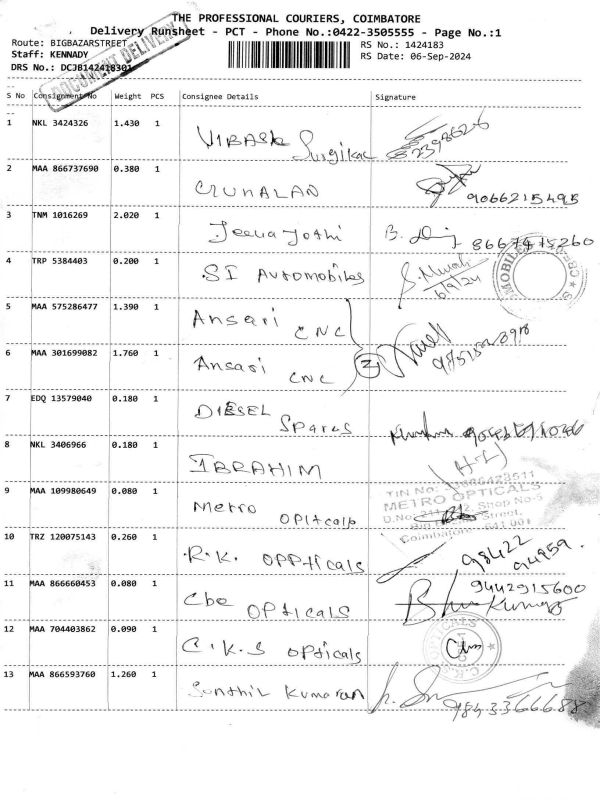 THE PROFESSIONAL COURIERS, COIMBATORE
Delivery Runsheet - PCT - Phone No.:0422-3505555 - Page No.:1
Route: BIGBAZARSTREET RS No.: 1424183
Staff: KENNADY RS Date: 06-Sep-2024
DRS No.: DCJB142418301
DOCUMENT DELIVERY
S No Consignment No Weight PCS Consignee Details Signature
1 NKL 3424326 1.430 1 VIBASK Surgikal 2398626
2 MAA 866737690 0.380 1 CRUNALAN 9066215495
3 TNM 1016269 2.020 1 Jeeva Jothi B.
4 TRP 5384403 0.200 1 SI Automobiles 6/9/24
5 MAA 575286477 1.390 1 Ansari CNC
6 MAA 301699082 1.760 1 Ansari CNC 2
7 EDQ 13579040 0.180 1 DIESEL Spares
8 NKL 3406966 0.180 1 IBRAHIM
9 MAA 109980649 0.080 1 Metro OPltcalp
TIN No.
METRO OPTICALS
D.No. Shop No-5
Street,
Coimbatore - 641 001
10 TRZ 120075143 0.260 1 R.K. OPPticals 98422 94959.
11 MAA 866660453 0.080 1 Cbe OPTicals 9442915600
Kumar
12 MAA 704403862 0.090 1 C.K.S opticals
13 MAA 866593760 1.260 1 Senthil Kumaran 9843366688